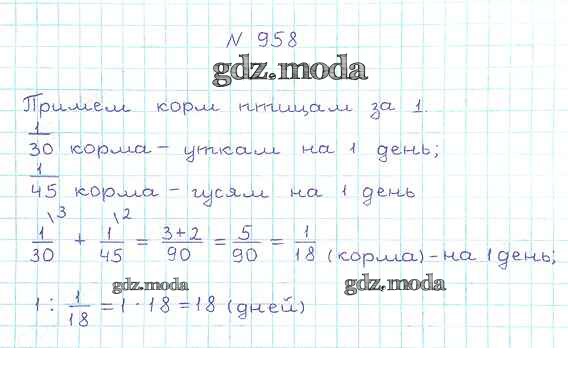 № 958
gdz.moda
Примем корм птицам за 1.
1/30 корма - уткам на 1 день;
1/45 корма - гусям на 1 день
1/30 \3 + 1/45 \2 = 3+2/90 = 5/90 = 1/18 (корма) - на 1 день;
gdz.moda gdz.moda
1 : 1/18 = 1 · 18 = 18 (дней)